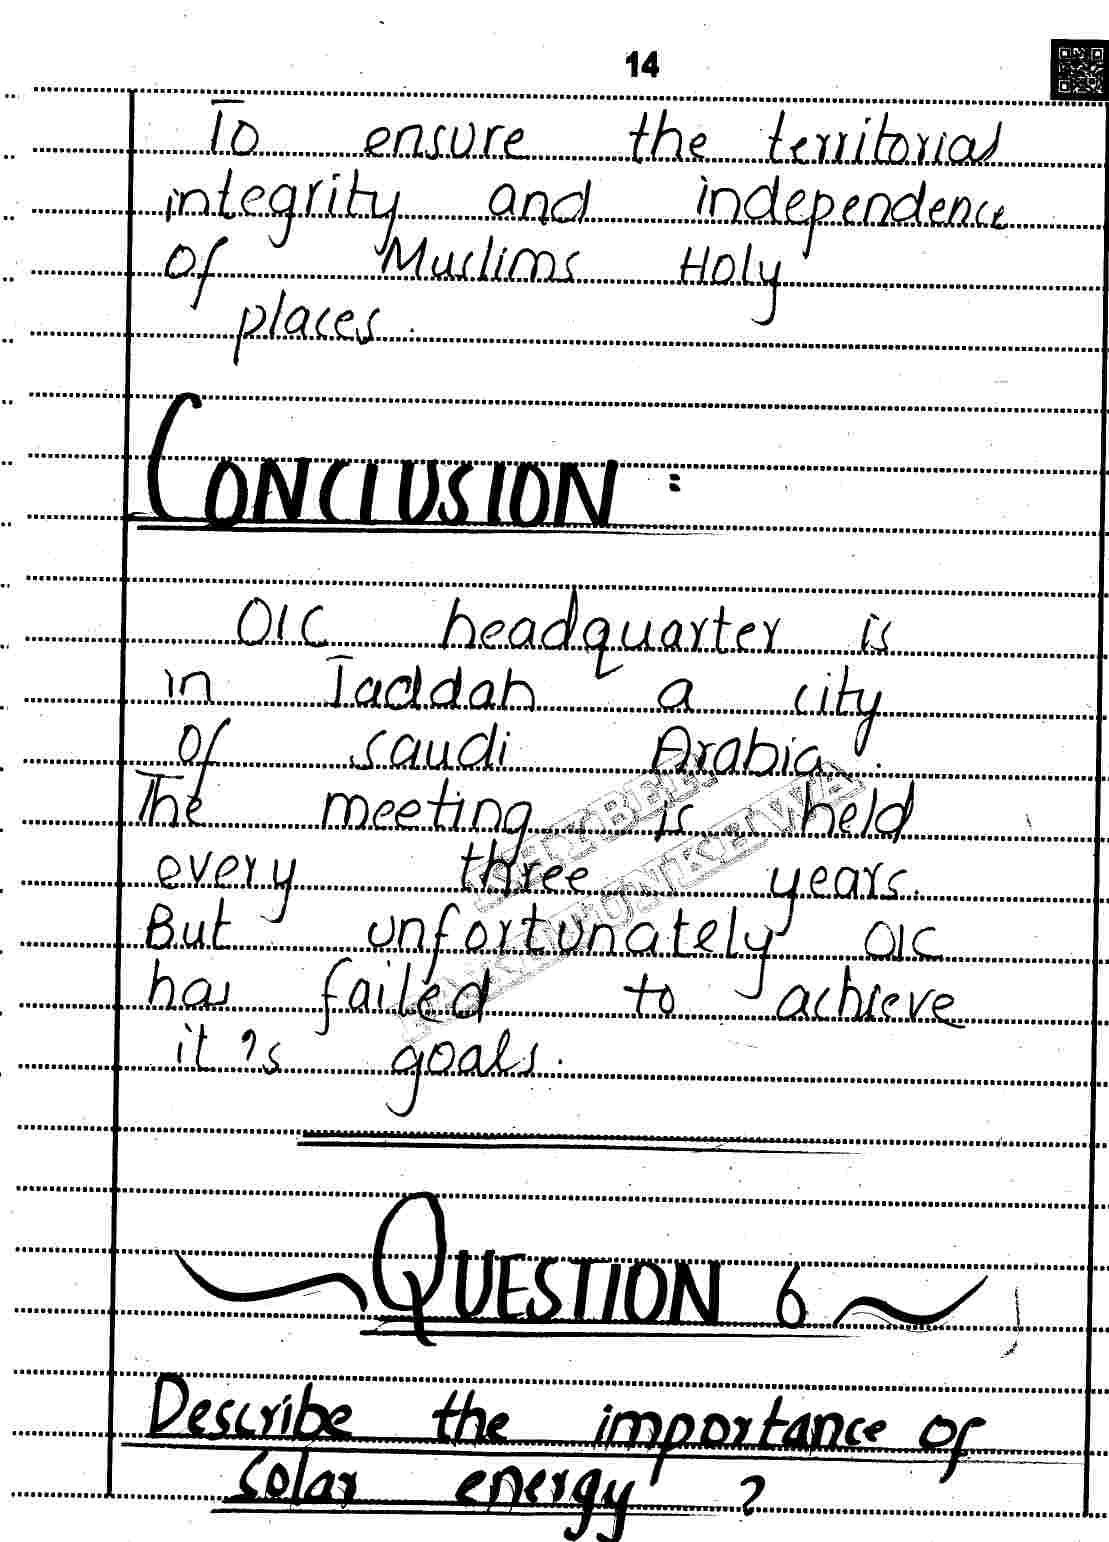 14
To ensure the territorial
integrity and independence
of Muslims Holy
places.
CONCLUSION :
OIC headquarter is
in Jaddah a city
of saudi Arabia.
The meeting is held
every three years.
But unfortunately OIC
has failed to achieve
it's goals.
QUESTION 6
Describe the importance of
solar energy ?